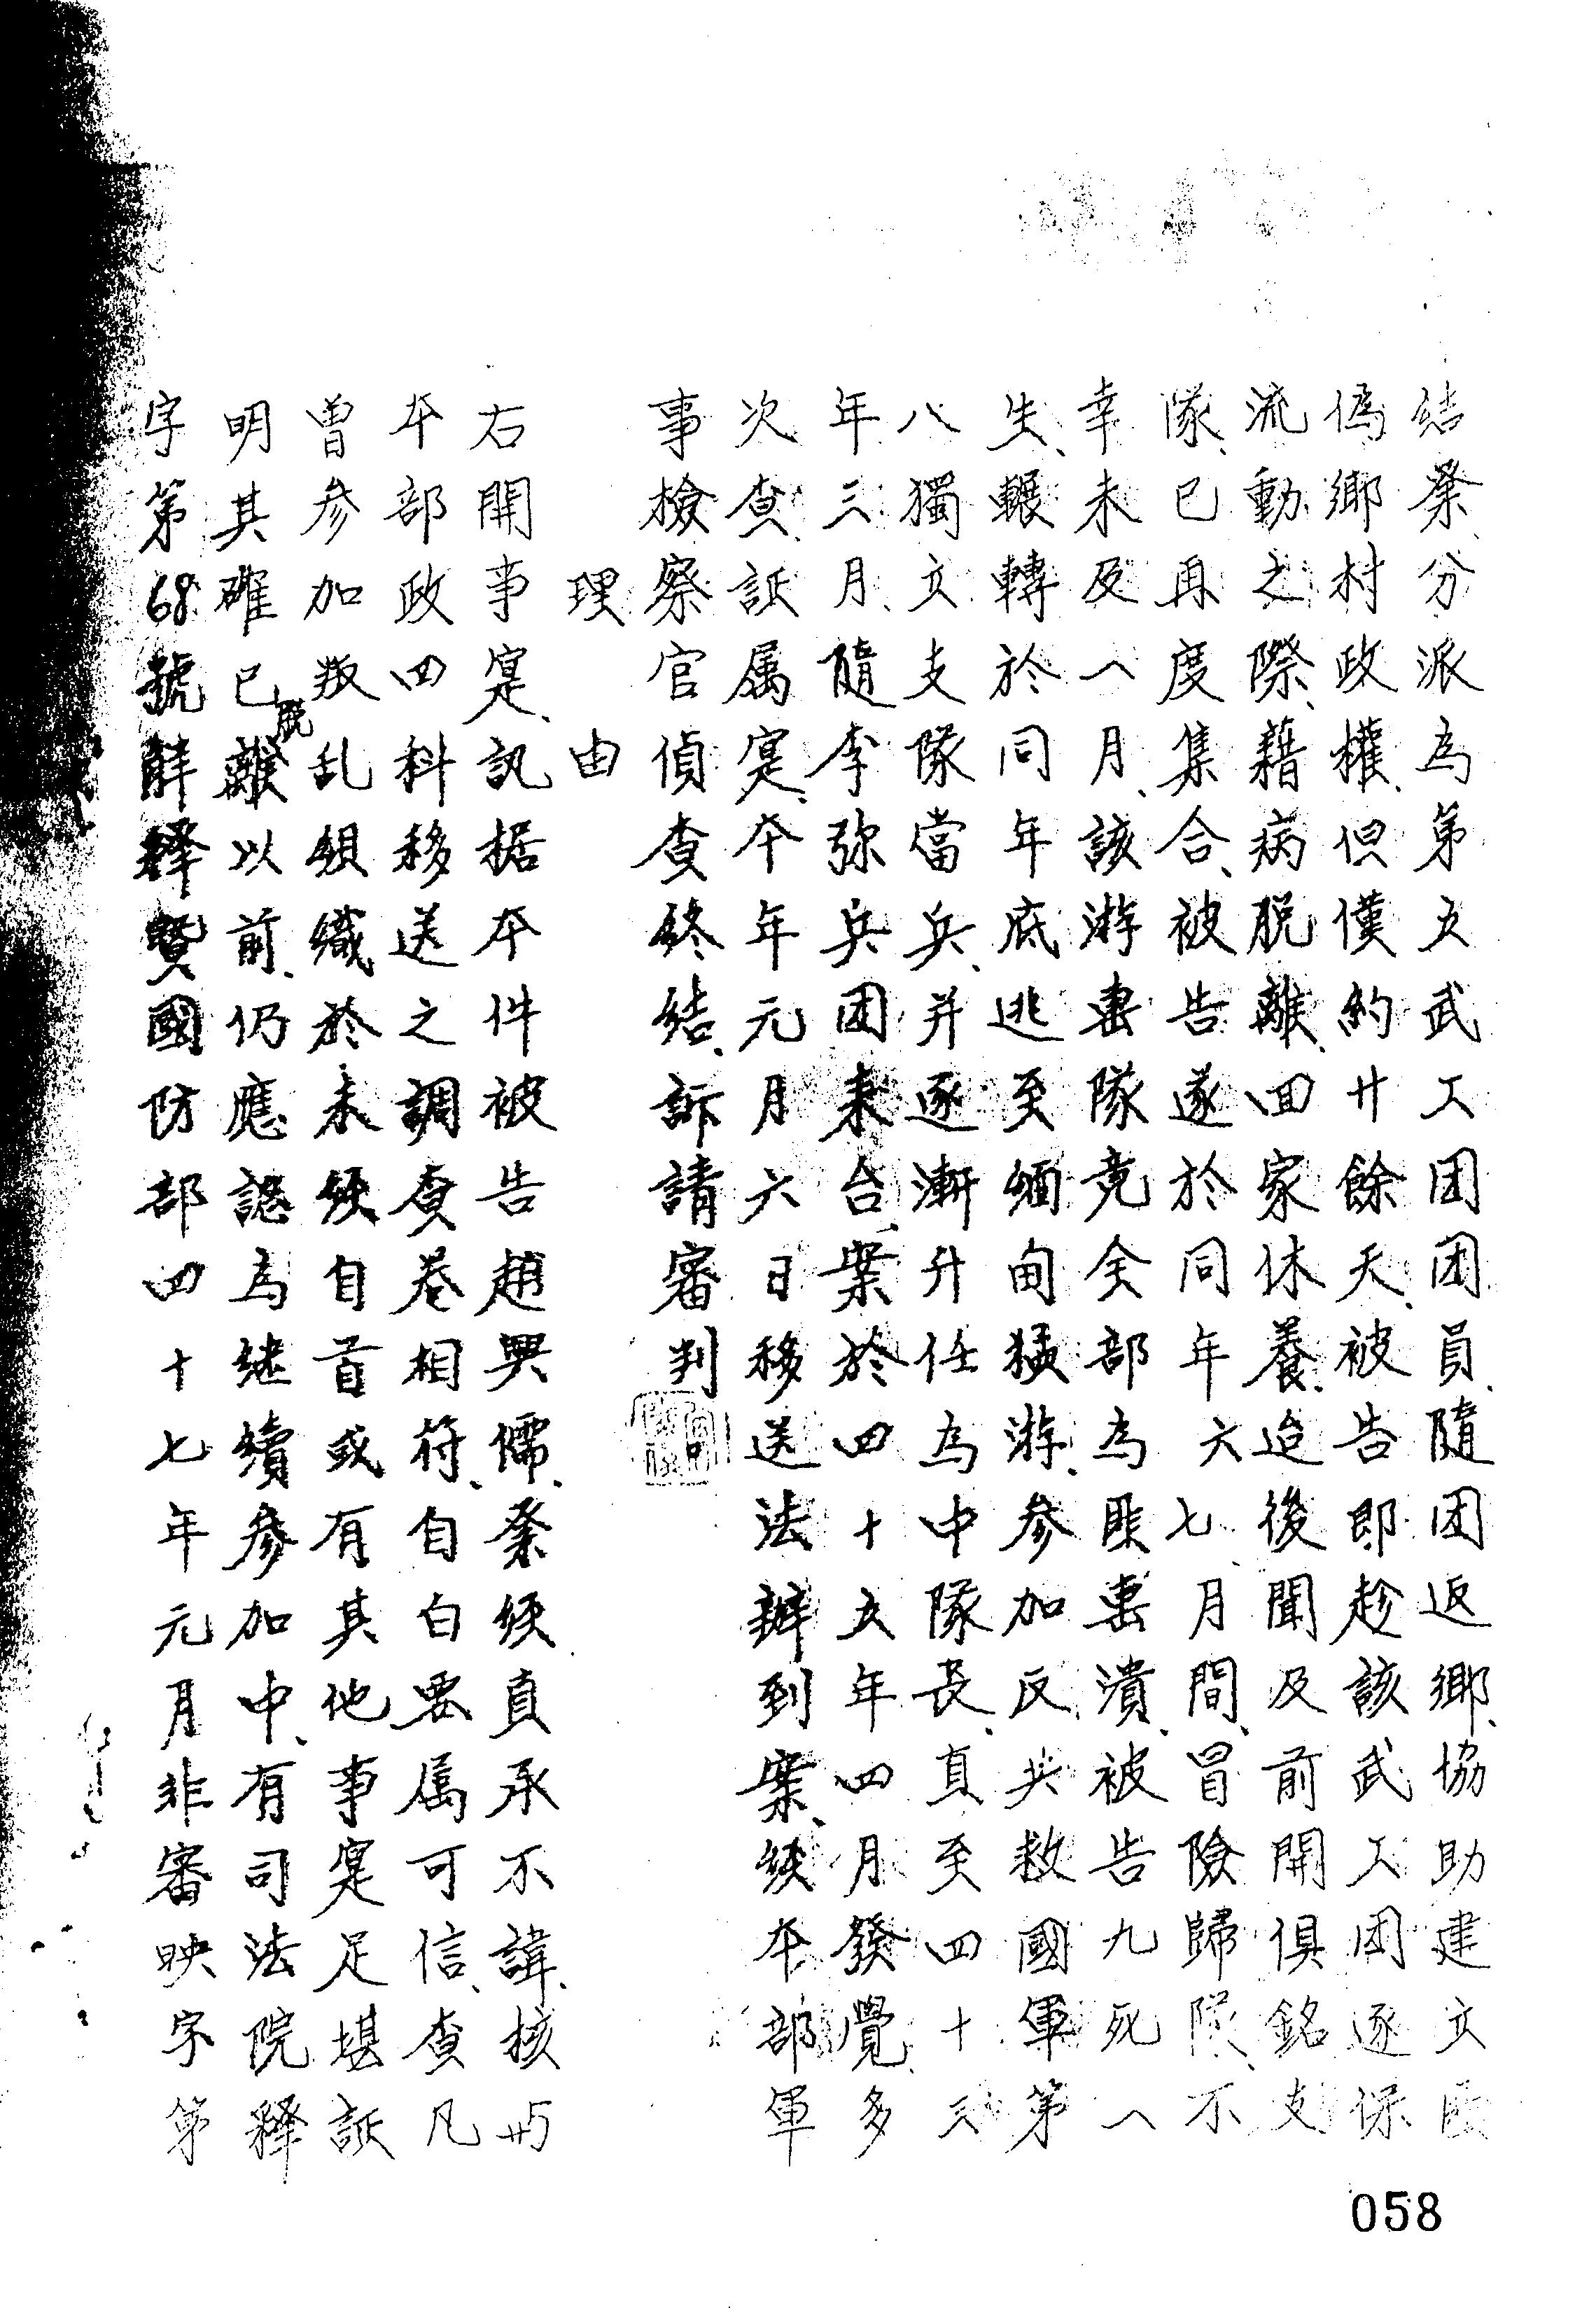 結業分派為第五武工团团員、隨团返鄉、協助建立
偽鄉村政權、但僅約廿餘天、被告即趁該武工团逐保
流動之際、藉病脱離、回家休養、迨後聞及前開俱銘支
隊、已再度集合、被告遂於同年六七月間、冒險歸隊、不
幸未及一月、該游擊隊竟全部為匪擊潰、被告九死一
生、輾轉於同年底逃至緬甸猛游、参加反共救國軍第
八獨立支隊當兵、并逐漸升任為中隊長、直至四十三
年三月隨李弥兵团来台、案於四十五年四月發覺、多
次查証属寔、本年元月六日移送法辦到案、経本部軍
事檢察官偵查終結、訴請審判
理由
右開事寔、訊据本件被告趙興儒、業経直承不諱、核與
本部政四科移送之調查卷相符、自白要属可信、查凡
曾參加叛乱組織於未経自首或有其他事寔足堪証
明其確已脱離以前、仍應認為继續參加中、有司法院释
字第68號解释暨國防部四十七年元月非審映字第
058